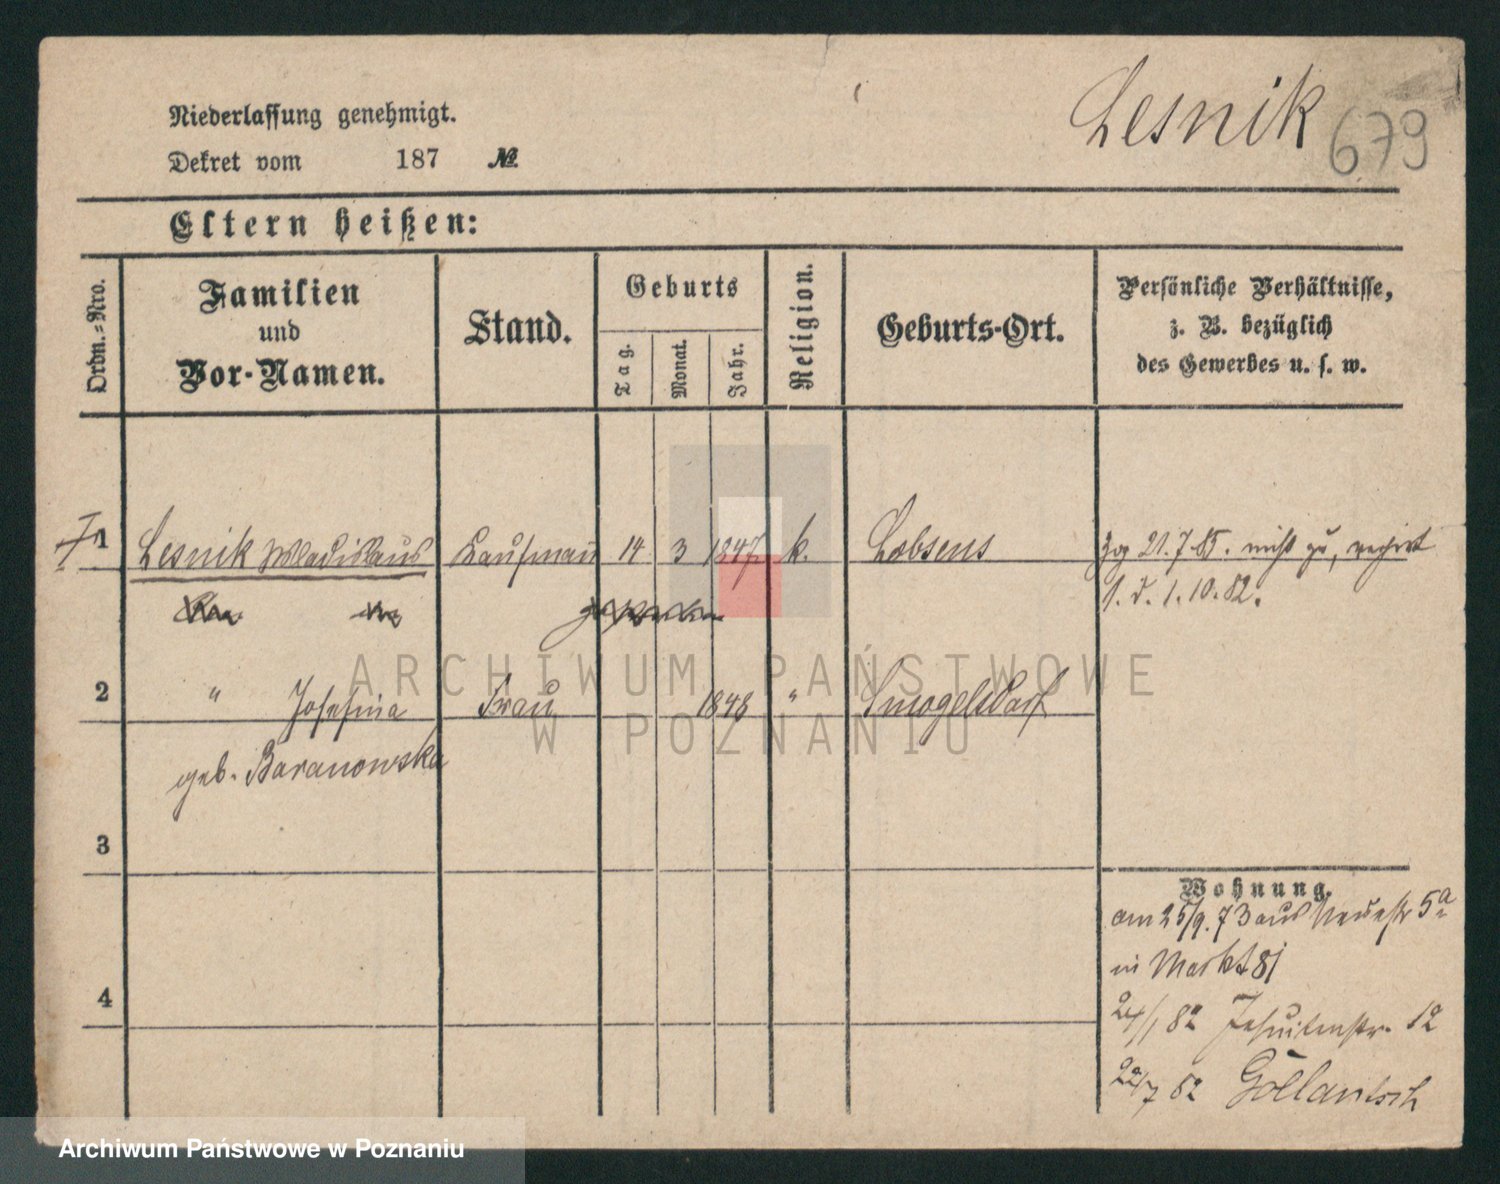 Lesnik 679
Niederlassung genehmigt.
Dekret vom 187 №
Eltern heißen:
Ordn.=Nro.
Familien
und
Vor-Namen.
Stand.
Geburts
Tag.
Monat.
Jahr.
Religion.
Geburts-Ort.
Persönliche Verhältnisse,
z. B. bezüglich
des Gewerbes u. s. w.
1 Lesnik Wladislaus Kaufmann 14 3 1847 k. Lobsens 21.7.85. nicht zu,
1.10.82.
2 " Josefina Frau 1848 " Smogelsdorf
geb. Baranowska
3
Wohnung.
am 25/9. 73 aus Neuestr 5a
in Markt 81
4
24/1 82 Jesuitenstr. 12
22/7 82 Gollantsch
ARCHIWUM PAŃSTWOWE
W POZNANIU
Archiwum Państwowe w Poznaniu